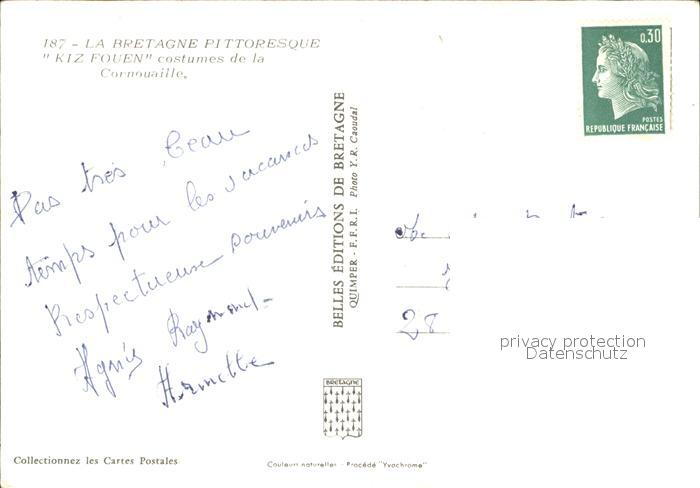 187 - LA BRETAGNE PITTORESQUE
"KIZ FOUEN" costumes de la
Cornouaille.
Pas très beau
temps pour les vacances
Respectueux souvenirs
Agnès Raymond -
Armelle
BELLES ÉDITIONS DE BRETAGNE
QUIMPER - F.F.R.I. Photo Y. R. Caoudal
0,30
POSTES
REPUBLIQUE FRANÇAISE
28
privacy protection
Datenschutz
BRETAGNE
Collectionnez les Cartes Postales
Couleurs naturelles - Procédé "Yvochrome"